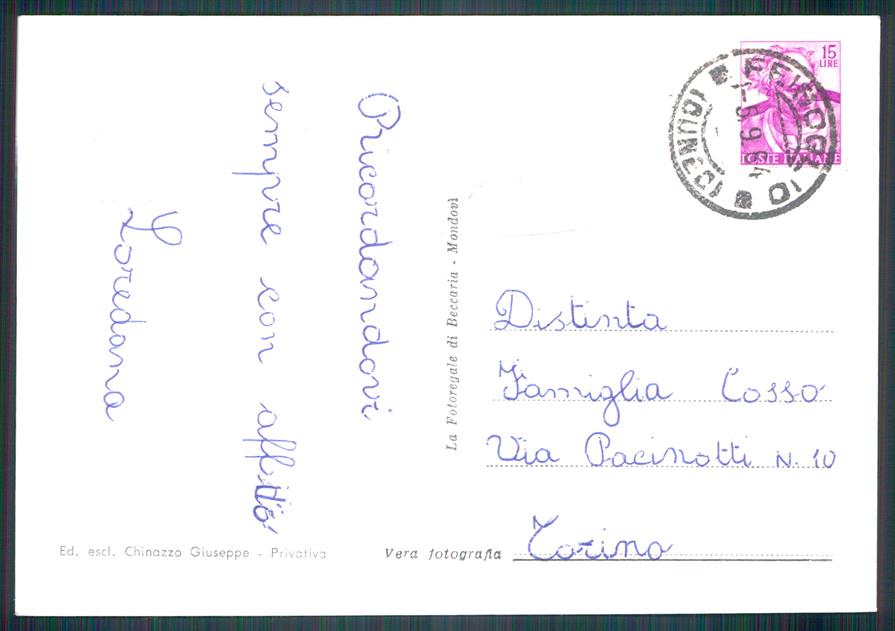 Ricordandovi
sempre con affetto
Loredana
Distinta
Famiglia Cosso
Via Pacinotti N. 10
Torino
La Fotoregale di Beccaria - Mondovì
Ed. escl. Chinazzo Giuseppe - Privativa
Vera fotografia
15
LIRE
POSTE ITALIANE
(CUNEO)